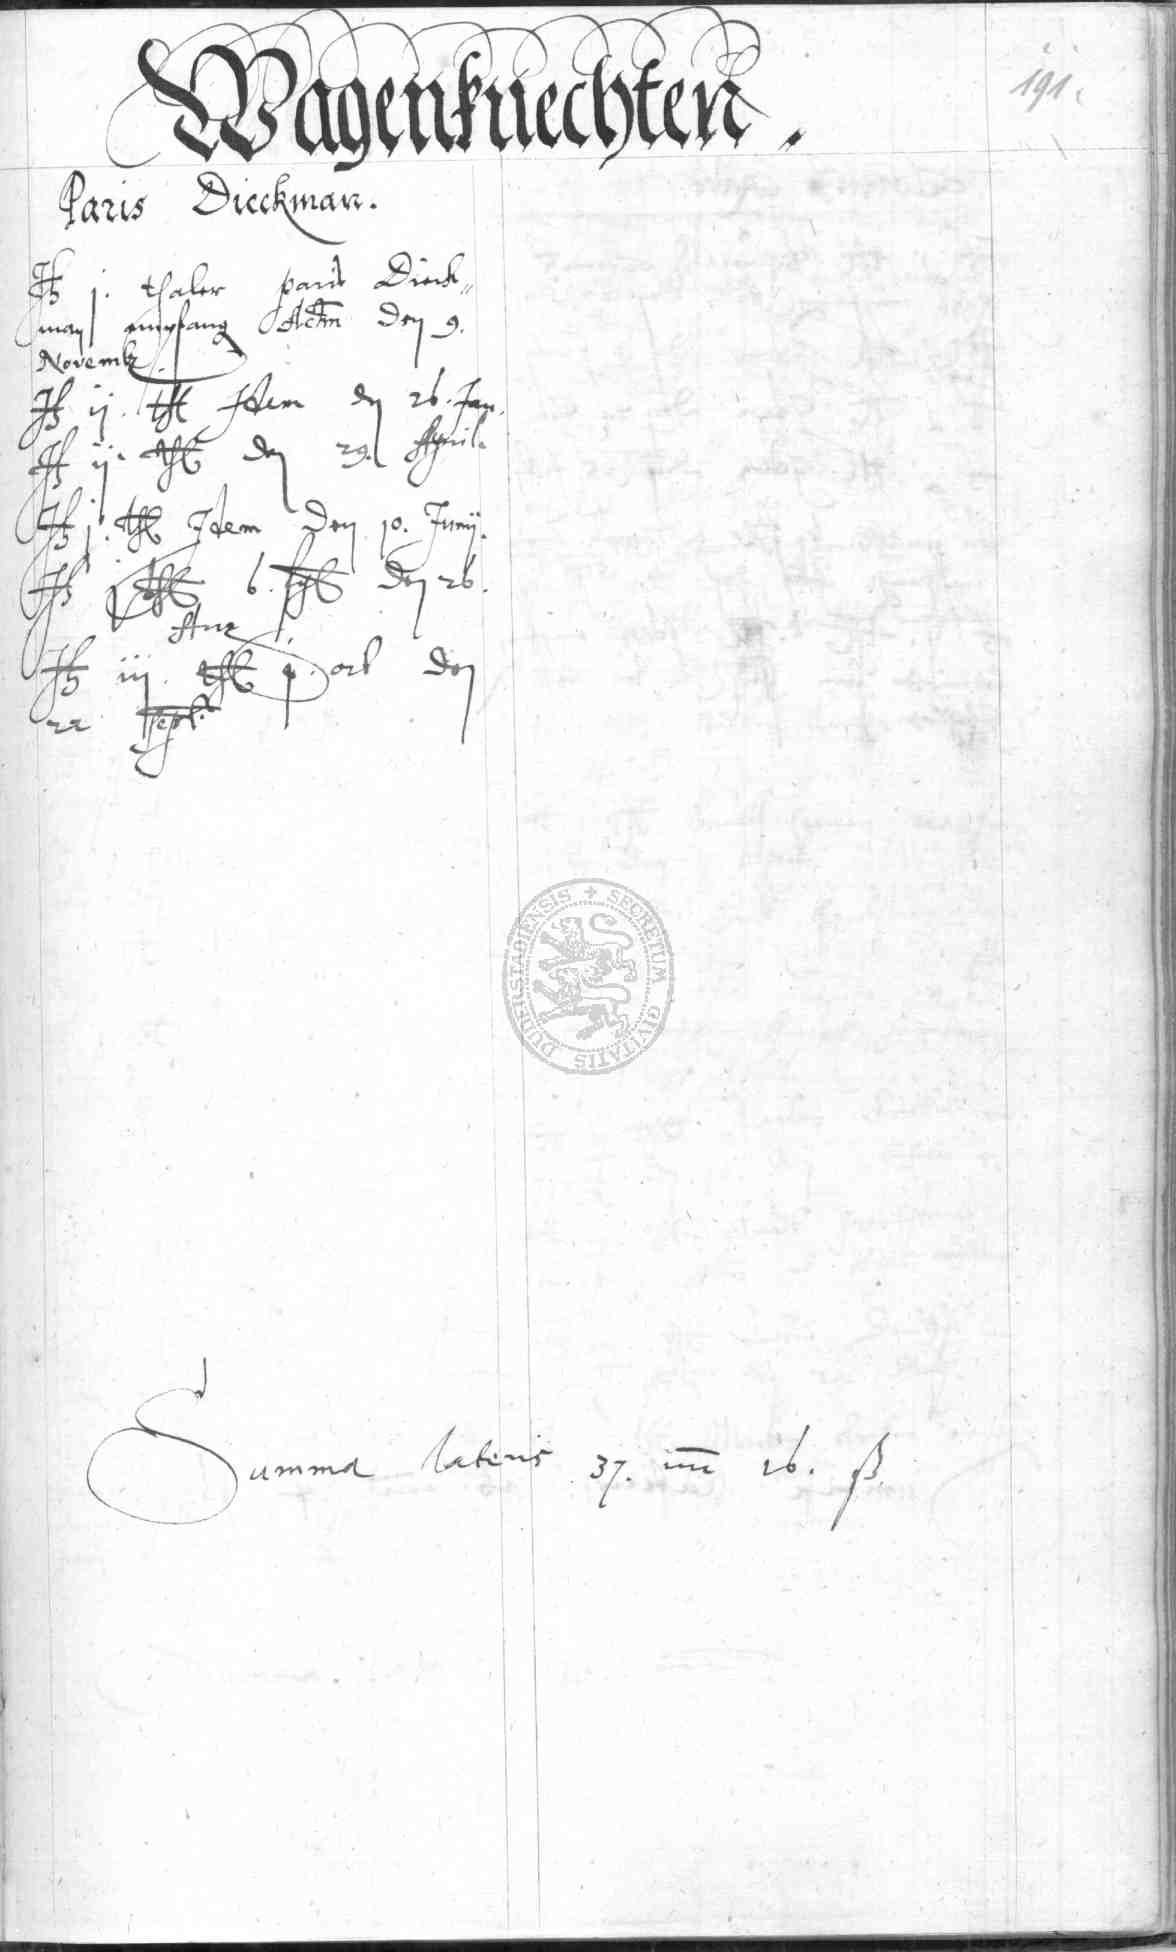 Wagenknechten.
191.
Paris Dieckman.
It j. thaler paris Dieck„
man empfang Actm den 9.
Novemb.
It ij. thl Idem den 26. Jan.
It ij thl den 29. April.
It j. thl Idem den 10. Junij.
It j thl 6. den 26.
Aug
It iij. thl j. ort den
22 Sept.
Summa lateris 37. 26. ß
SECRETUM CIVITATIS DUDERSTADIENSIS